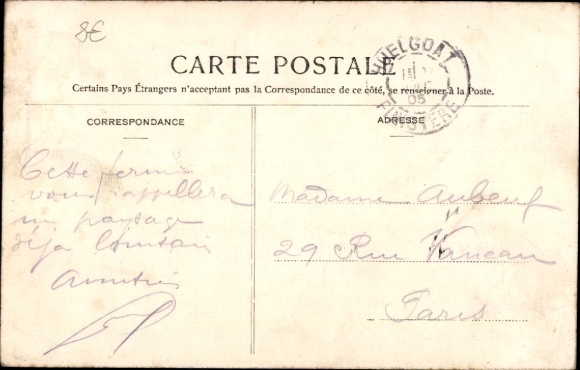 8€
CARTE POSTALE
Certains Pays Étrangers n'acceptant pas la Correspondance de ce côté, se renseigner à la Poste.
HUELGOAT
05
FINISTÈRE
CORRESPONDANCE
ADRESSE
Cette ferme
vous rappellera
un paysage
déja lointain
Madame Aubeuf
29 Rue Vaneau
Paris